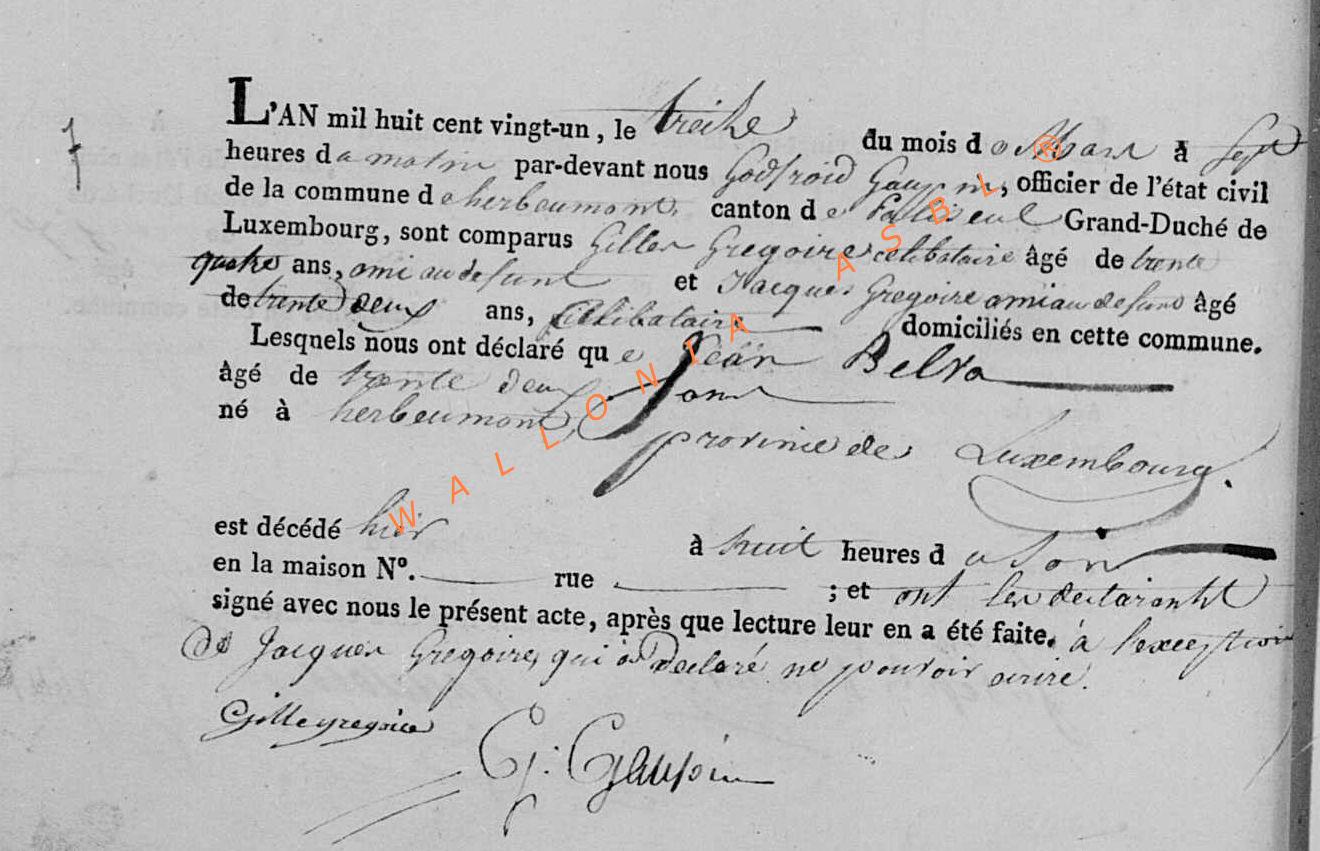 7
L'AN mil huit cent vingt-un, le treize du mois de Mars à sept
heures du matin par-devant nous Godfroid Gaupin, officier de l'état civil
de la commune de herbeumont, canton de Paliseul Grand-Duché de
Luxembourg, sont comparus Gilles Gregoire celibataire âgé de trente
quatre ans, ami au defunt et Jacques Gregoire ami au defunt âgé
de trente deux ans, Celibataire domiciliés en cette commune.
Lesquels nous ont déclaré que Jean Belva
âgé de trente deux ans
né à herbeumont, province de Luxembourg.
est décédé hier à huit heures du soir
en la maison N°. rue ; et ont les declarants
signé avec nous le présent acte, après que lecture leur en a été faite, à l'exception
de Jacques Gregoire, qui a declaré ne pouvoir ecrire.
Gille gregoire
G: Gaupin
WALLONIA ASBL ®